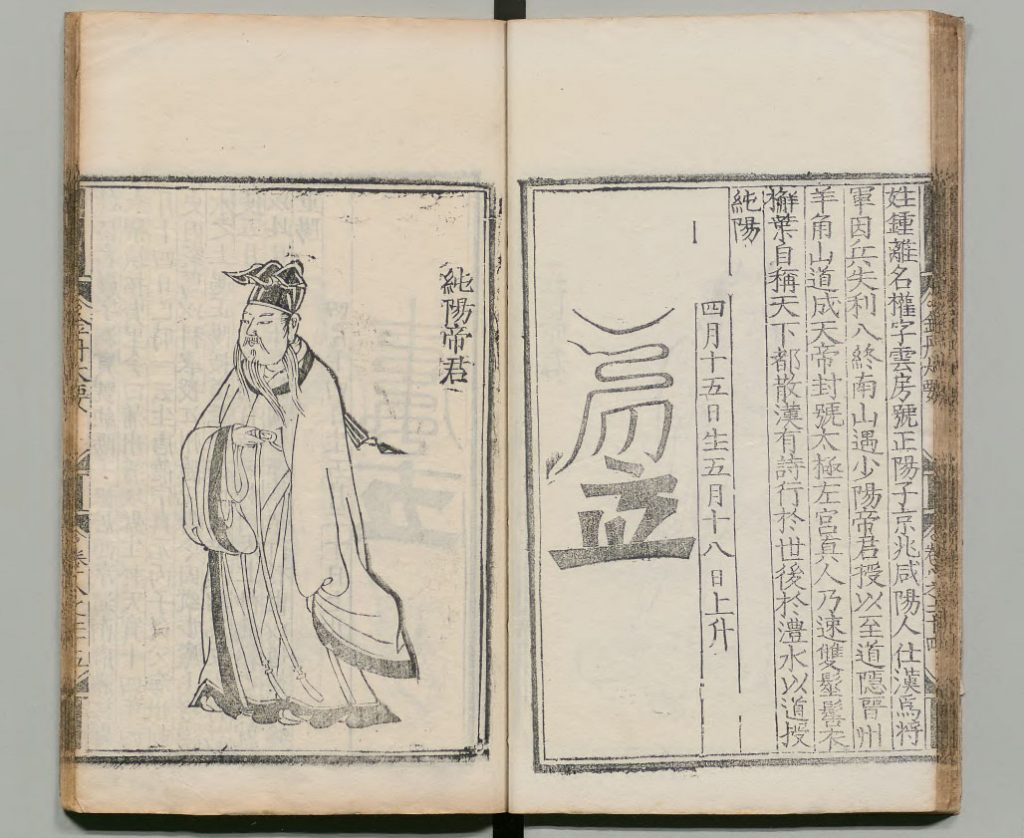 姓鍾離名權字雲房號正陽子京兆咸陽人仕漢爲將
軍因兵失利入終南山遇少陽帝君授以至道隱晉州
羊角山道成天帝封號太極左宮真人乃速雙髽髻衣
槲葉自稱天下都散漢有詩行於世後於澧水以道授
純陽
四月十五日生五月十八日上升
純陽帝君
金丹大要